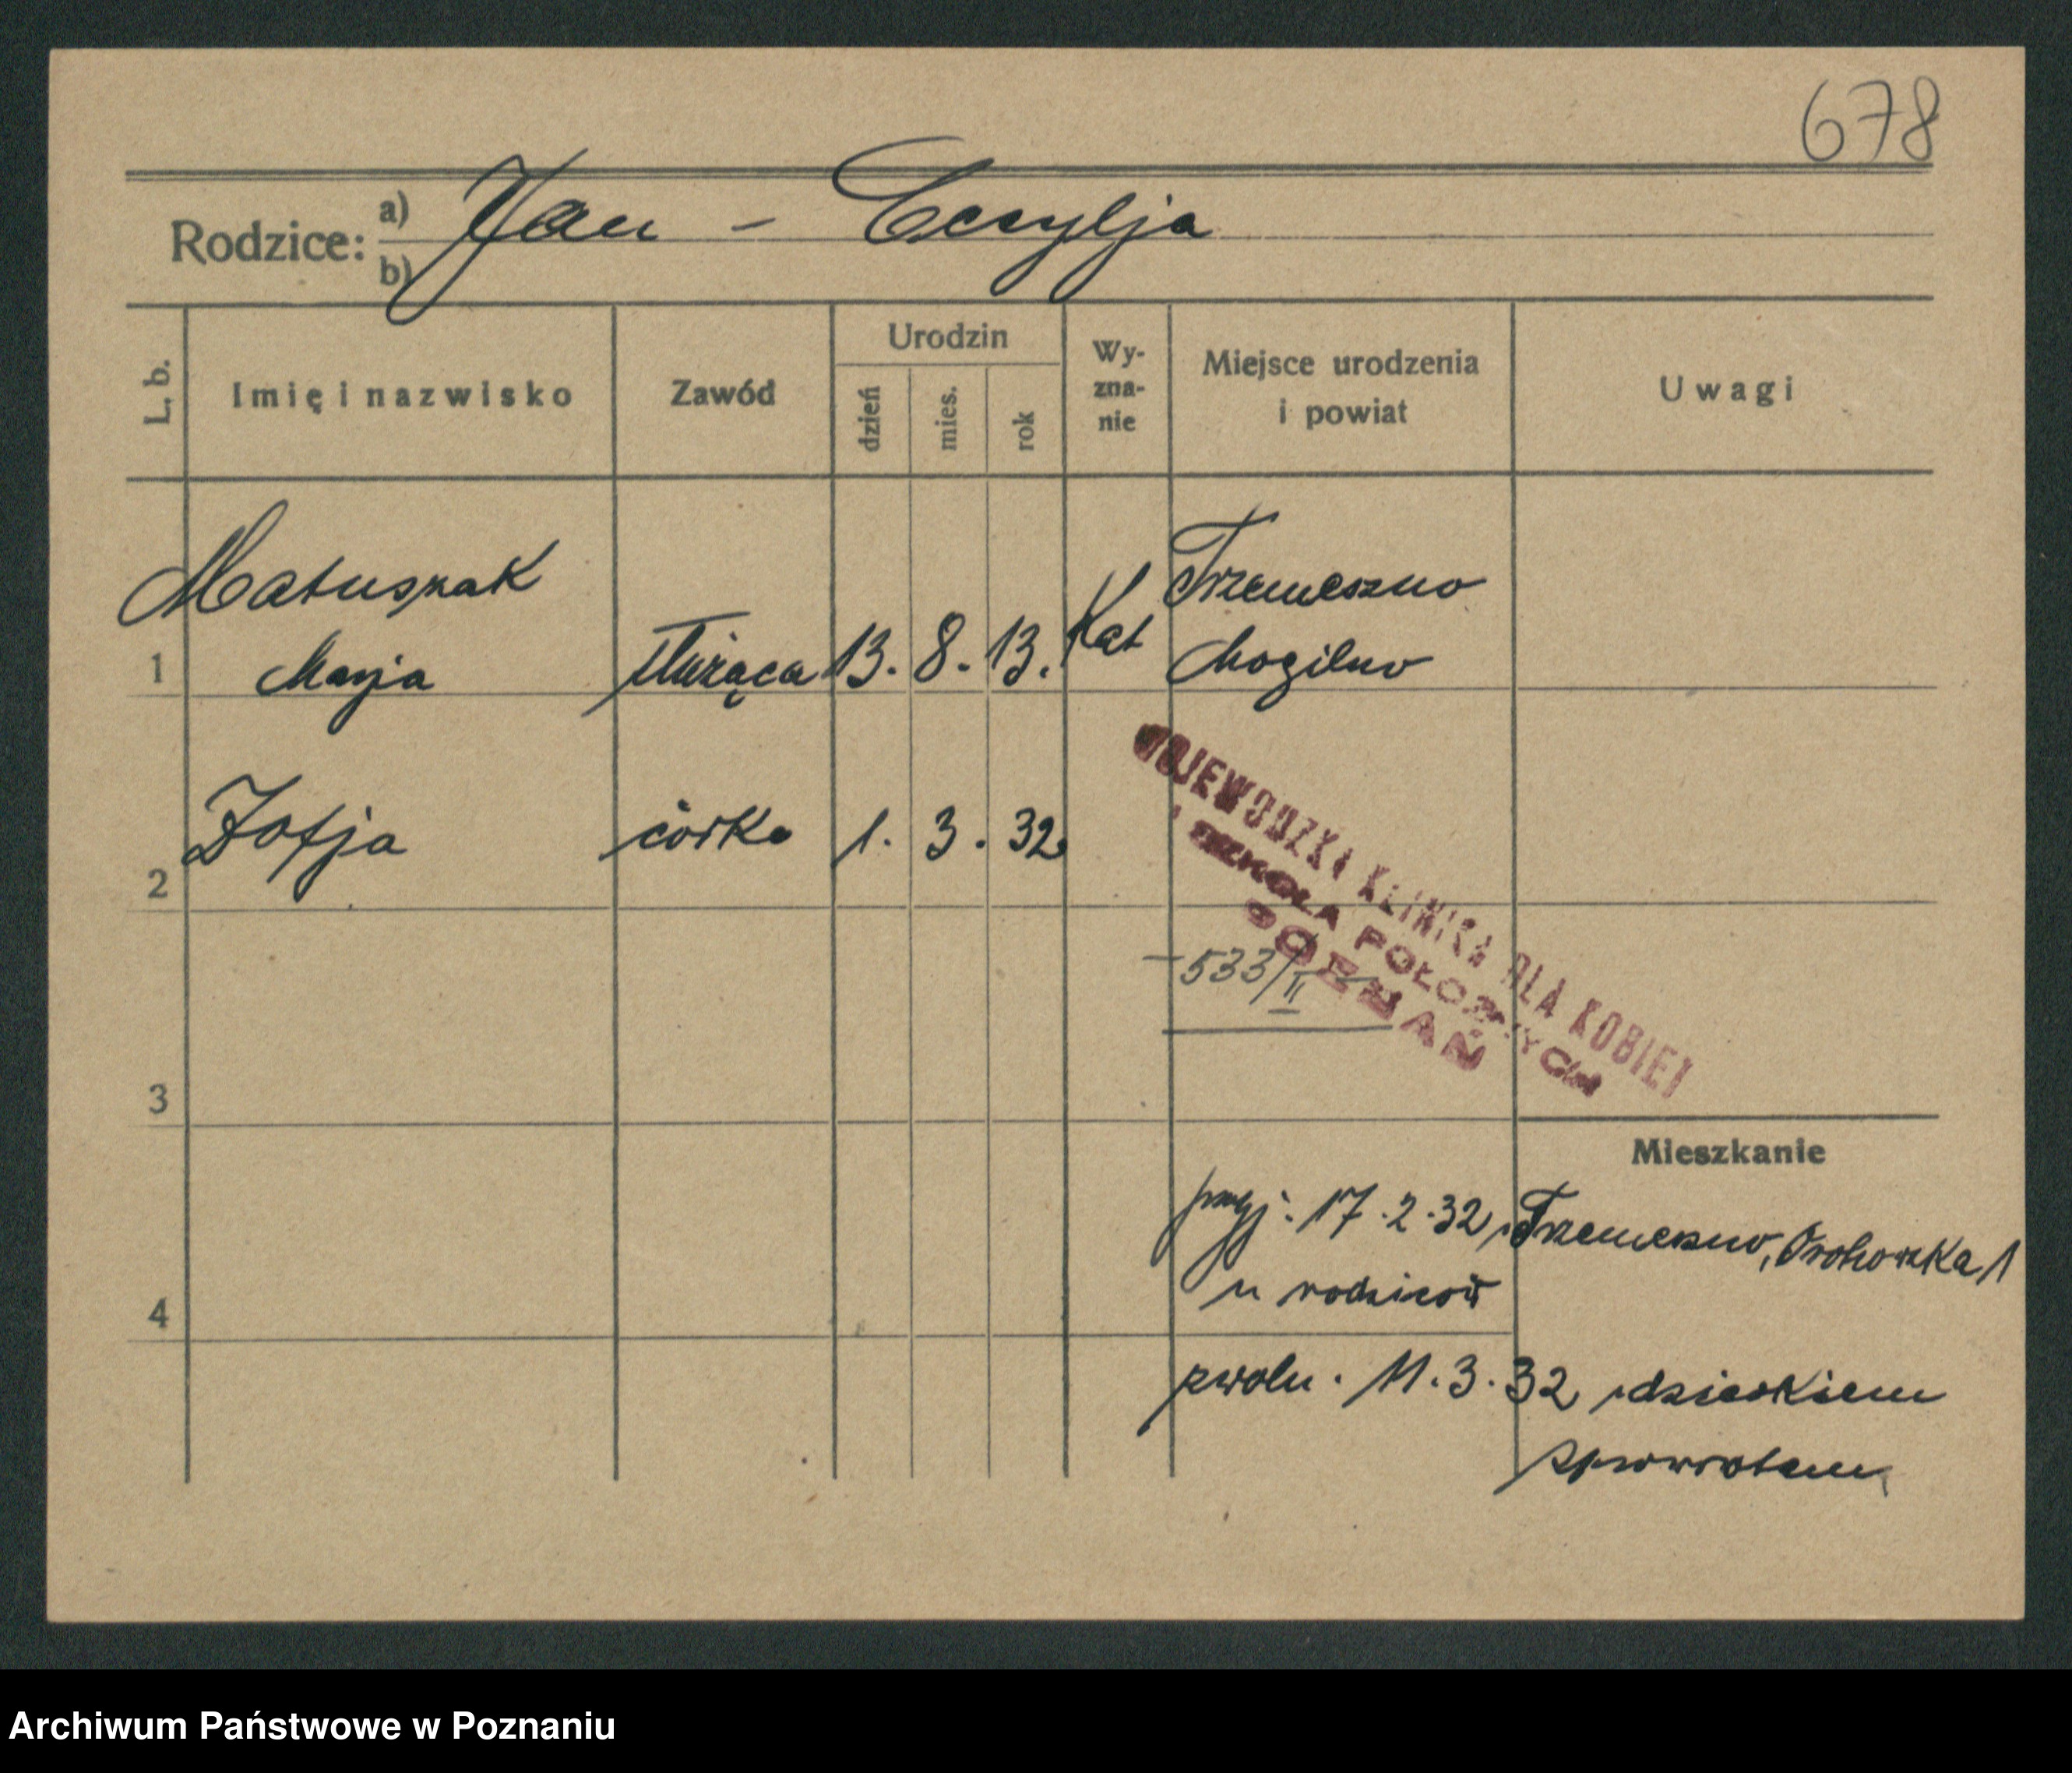 678
Rodzice: a) Jan - Cecylja
b)
L. b.
Imię i nazwisko
Zawód
Urodzin
dzień
mies.
rok
Wy-
zna-
nie
Miejsce urodzenia
i powiat
Uwagi
Matuszak Trzemeszno
1 Marja służąca 13. 8. 13. Kat Mogilno
2 Zofja córka 1. 3. 32.
WOJEWÓDZKA KLINIKA DLA KOBIET
I SZKOŁA POŁOŻNYCH
POZNAŃ
533/II
3
Mieszkanie
przyj. 17.2.32, Trzemeszno, 1
u rodziców
4
zwoln. 11.3.32 z dzieckiem
zpowrotem
Archiwum Państwowe w Poznaniu